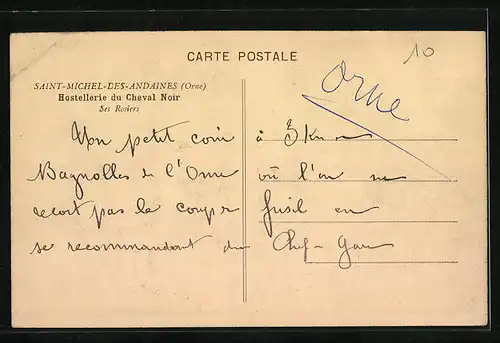 CARTE POSTALE
10
SAINT-MICHEL-DES-ANDAINES (Orne)
Hostellerie du Cheval Noir
Ses Rosiers
Orne
Un petit coin à 3 Km
Bagnolles de l'Orne où l'on ne
pas le coup fusil en
se recommandant du Chef